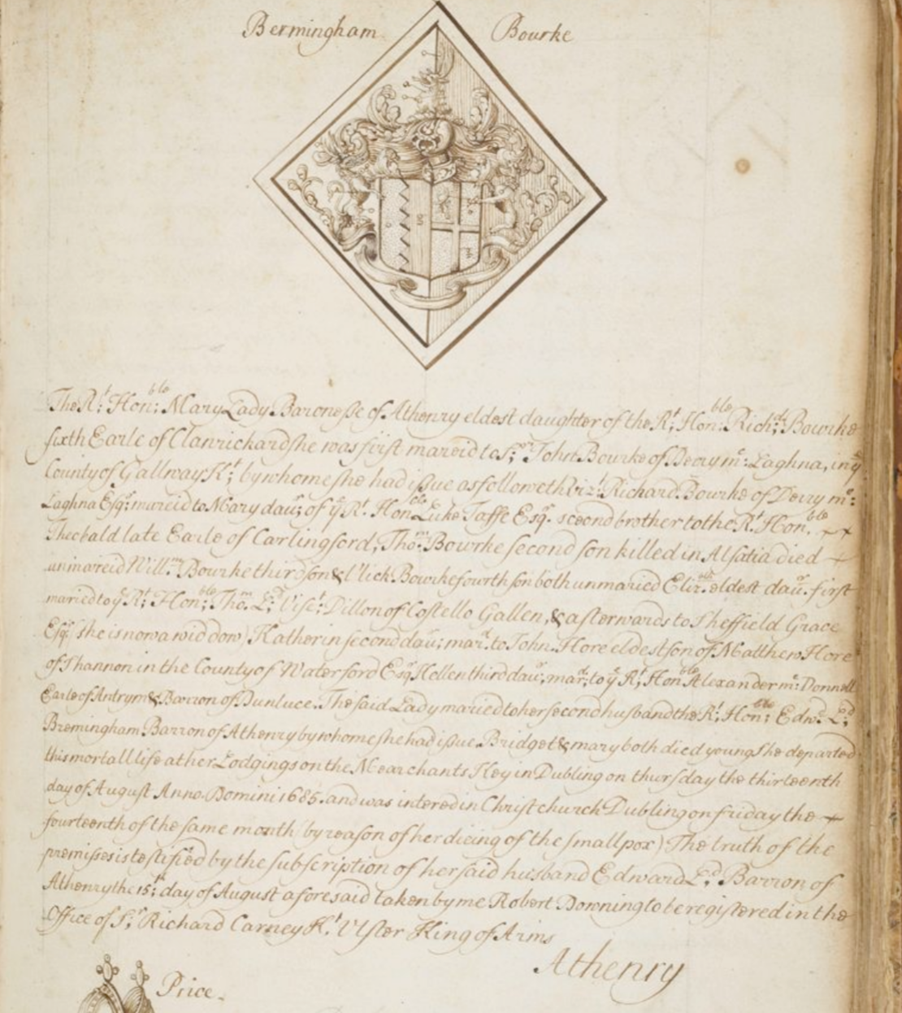 Bermingham Bourke
The Rt: Honble: Mary Lady Baronesse of Athenry eldest daughter of the Rt: Honble: Richd: Bourke
sixth Earle of Clanrickard she was first mareid to Sr: John Bourke of Derry mc: Laghna, in ye
County of Gallway Kt: by whome she had issue as followeth viz: Richard Bourke of Derry mc:
Laghna Esqr: mareid to Mary daur: of ye Rt: Honble Luke Taffe Esqr. second brother to the Rt: Honble:
Theobald late Earle of Carlingford, Thom: Bourke second son killed in Alsatia died
unmareid Willm: Bourke third son & Ulick Bourke fourth son both unmaried Elizth: eldest daur. first
maried to ye Rt: Honble: Tho: Ld: Visct: Dillon of Costello Gallen, & afterwards to Sheffield Grace
Esqr: she is now a widdow, Katherin second daur: mard: to John Hore eldest son of Matthew Hore
of Shannon in the County of Waterford Esqr Hellen third daur: mard: to ye Rt: Honble Alexander mc: Donnell
Earle of Antrym & Barron of Dunluce. The said Lady maried to her second husband the Rt: Honble: Edwd: Ld:
Bremingham Barron of Athenry by whome she had issue Bridget & mary both died young She departed
this mortall life at her Lodgings on the Mearchants Key in Dubling on thursday the thirteenth
day of August Anno. Domini 1685. and was intered in Christ church Dubling on friday the
fourteenth of the same month (by reason of her dieing of the smallpox) The truth of the
premisses is testified by the subscription of her said husband Edward Ld: Barron of
Athenry the 15th: day of August aforesaid taken by me Robert Downing to be registered in the
Office of Sr: Richard Carney Kt: Ulster King of Arms
Athenry
Price.